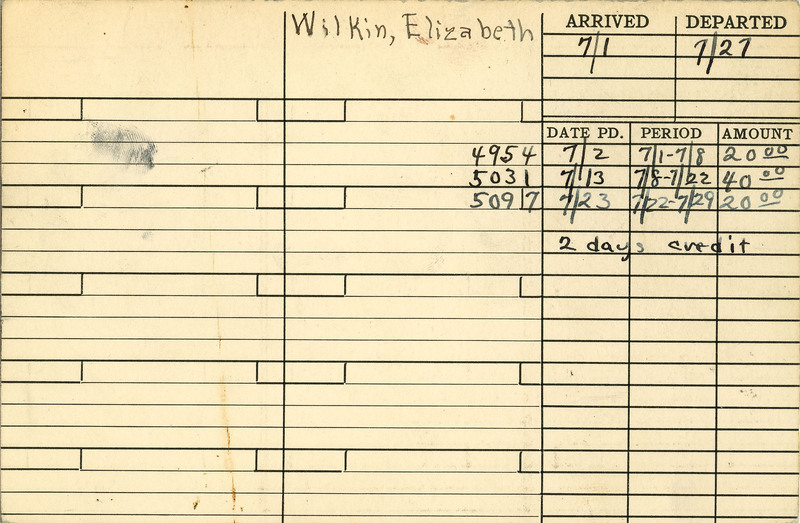 Wilkin, Elizabeth
ARRIVED DEPARTED
7/1 7/27
DATE PD. PERIOD AMOUNT
4954 7/2 7/1-7/8 20 00
5031 7/13 7/8-7/22 40 00
5097 7/23 7/22-7/29 20 00
2 days credit